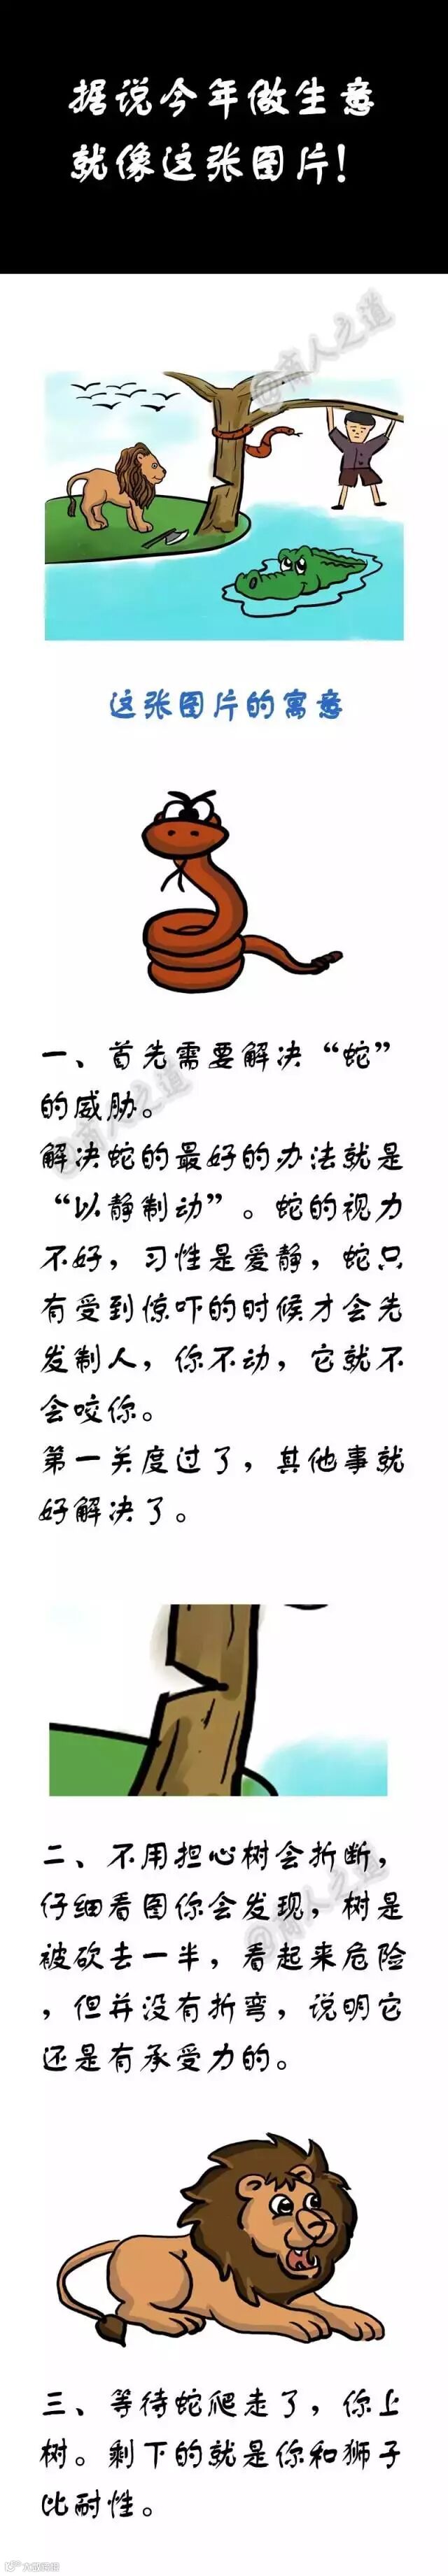 据说今年做生意
就像这张图片!
@商人之道
这张图片的寓意
一、首先需要解决“蛇”
的威胁。
@商人之道
解决蛇的最好的办法就是
“以静制动”。蛇的视力
不好，习性是爱静，蛇只
有受到惊吓的时候才会先
发制人，你不动，它就不
会咬你。
第一关度过了，其他事就
好解决了。
二、不用担心树会折断，
仔细看图你会发现，树是
@商人之道
被砍去一半，看起来危险
，但并没有折弯，说明它
还是有承受力的。
三、等待蛇爬走了，你上
树。剩下的就是你和狮子
比耐性。